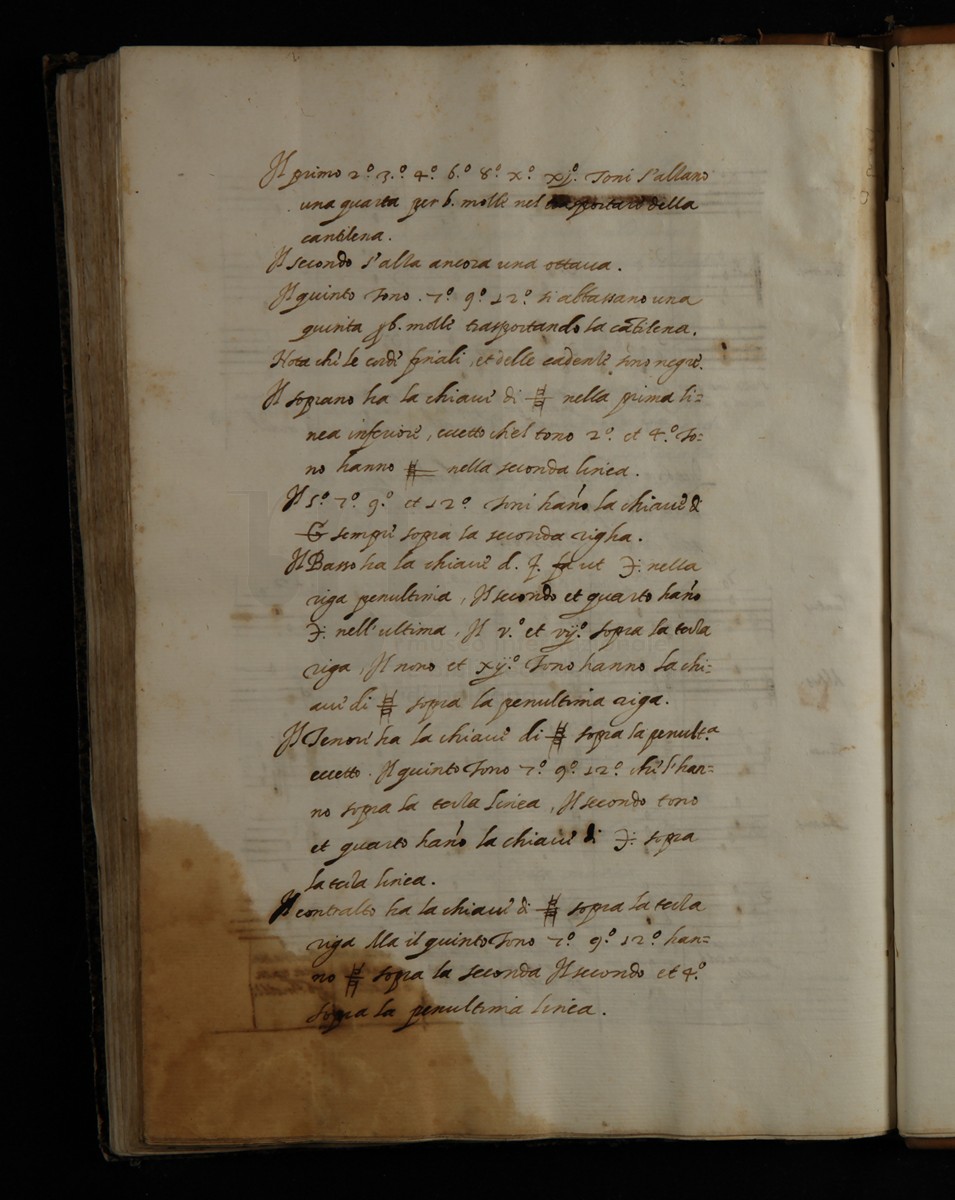 Il primo 2.º 3.º 4.º 6.º 8.º x.º xj.º Toni s'alzano
una quarta per b. molle nel trasportare della
cantilena.
Il secondo s'alza ancora una ottaua.
Il quinto Tono. 7.º 9.º 12.º si abbassano una
quinta p b. molle trasportando la cātilena.
Nota che le corde finali, et delle cadenze sono negre.
Il soprano ha la chiaue di nella prima li=
nea inferiore, eccetto ch'el tono 2.º et 4.º To=
no hanno nella seconda linea.
Il 5.º 7.º 9.º et 12.º Toni hanno la chiaue di
G sempre sopra la seconda righa.
Il Basso ha la chiaue d. f. fa ut nella
riga penultima, Il secondo et quarto hanno
nell'ultima, Il v.º et vij.º sopra la terza
riga, Il nono et xij.º Tono hanno la chi=
aue di sopra la penultima riga.
Il Tenore ha la chiaue di sopra la penult.a
eccetto. Il quinto Tono 7.º 9.º 12.º che l'han=
no sopra la terza linea, Il secondo tono
et quarto hanno la chiaue di sopra
la terza linea.
Il contralto ha la chiaue di sopra la terza
riga Ma il quinto Tono 7.º 9.º 12.º han=
no sopra la seconda Il secondo et 4.º
sopra la penultima linea.